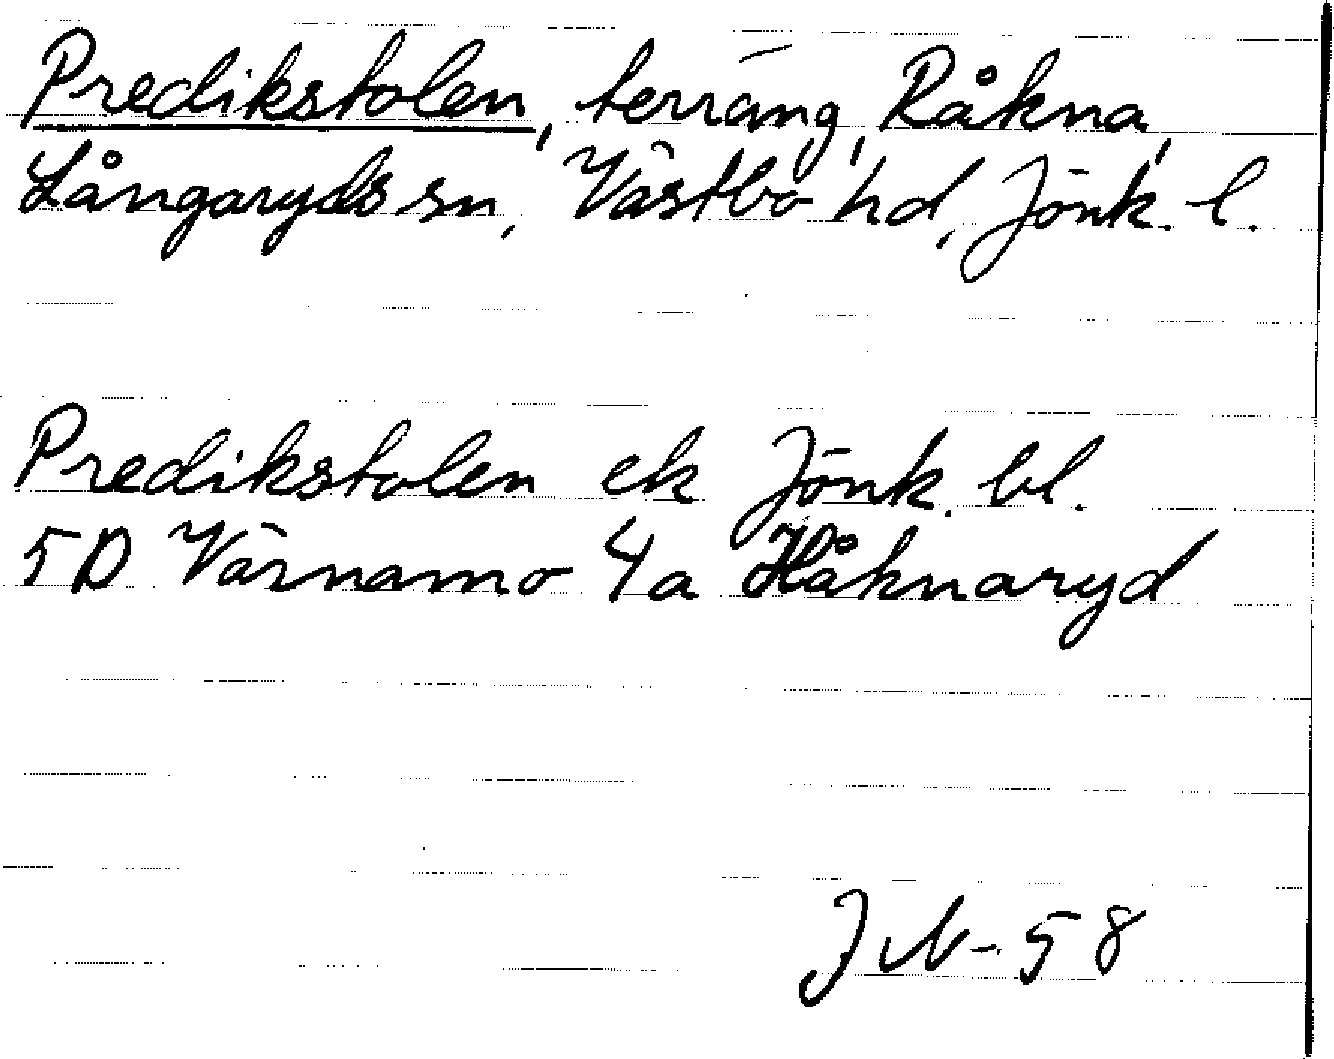 Predikstolen, terräng, Råkna,
Långaryds sn, Västbo hd, Jönk. l.
Predikstolen ek Jönk. bl.
5D Värnamo 4a Håknaryd
58